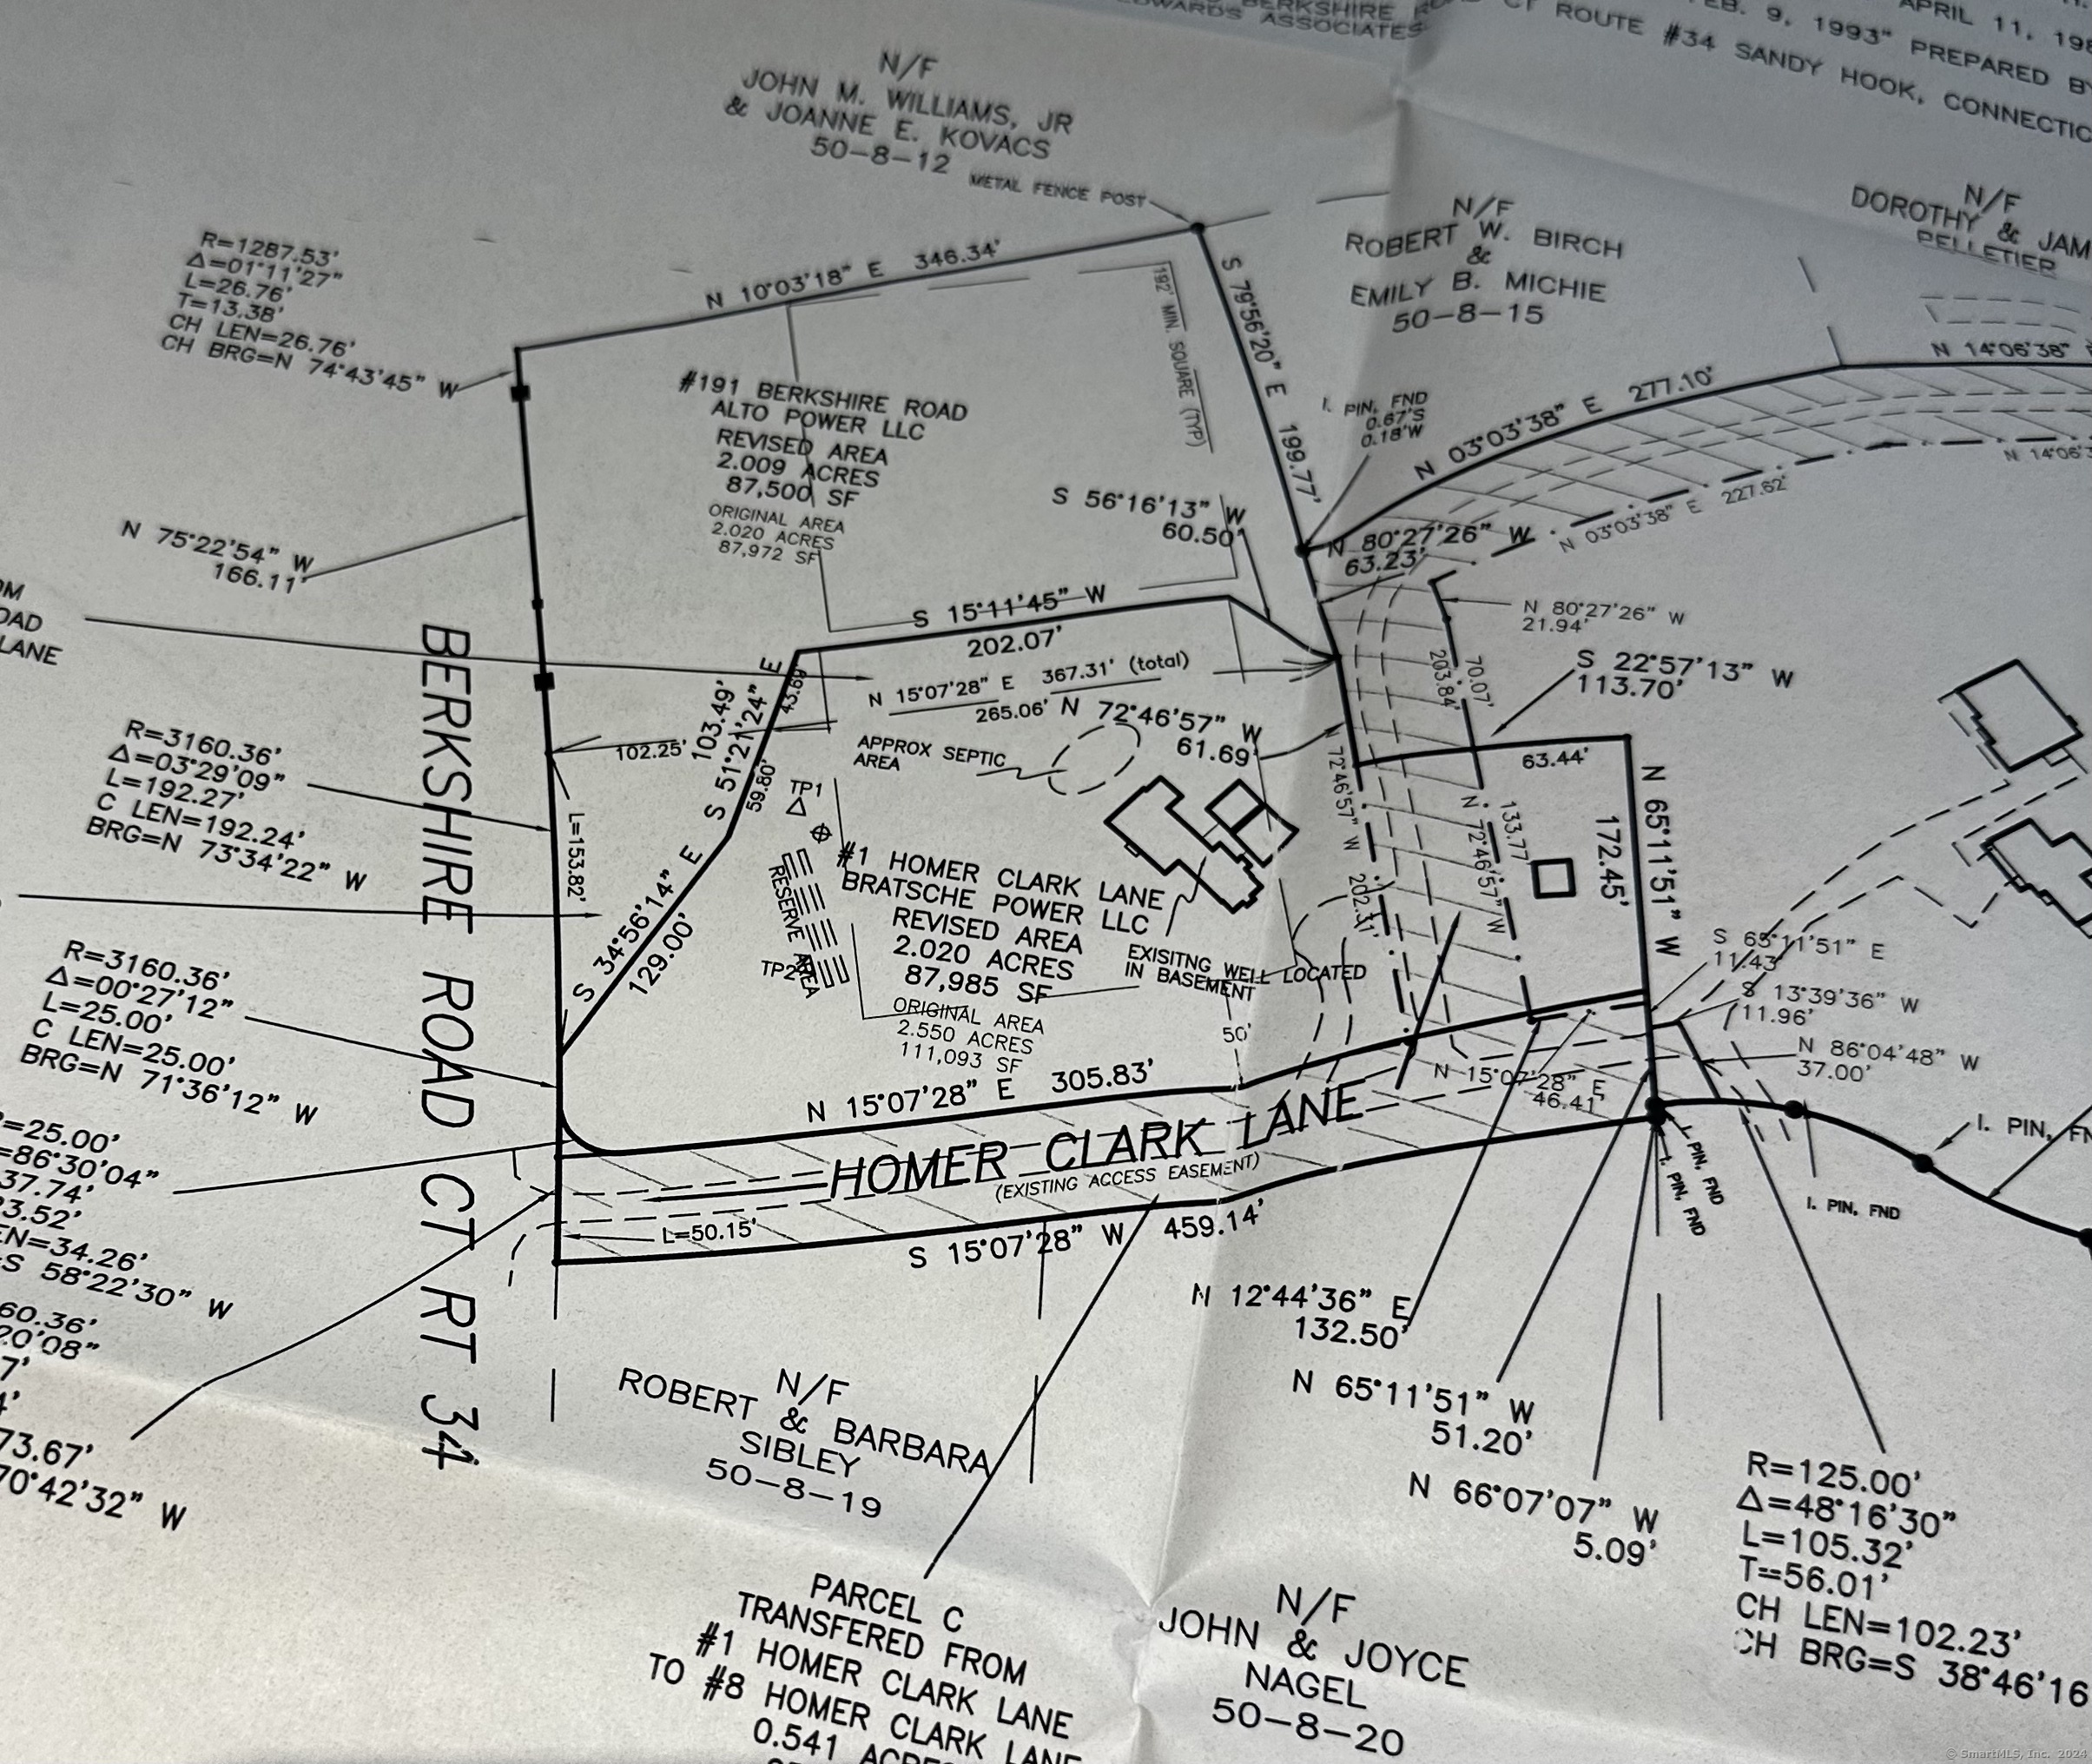 BERKSHIRE
EDWARDS ASSOCIATES
CT ROUTE #34 SANDY HOOK, CONNECTIC
FEB. 9, 1993" PREPARED BY
APRIL 11, 198
N/F
JOHN M. WILLIAMS, JR
& JOANNE E. KOVACS
50-8-12
METAL FENCE POST
N/F
ROBERT W. BIRCH
&
EMILY B. MICHIE
50-8-15
N/F
DOROTHY & JAM
PELLETIER
R=1287.53'
Δ=01°11'27"
L=26.76'
T=13.38'
CH LEN=26.76'
CH BRG=N 74°43'45" W
N 10°03'18" E 346.34'
192' MIN. SQUARE (TYP)
S 79°56'20" E 199.77'
I. PIN, FND
0.67'S
0.18'W
N 03°03'38" E 277.10'
N 14°06'38"
N 14°06'3
N 03°03'38" E 227.62'
#191 BERKSHIRE ROAD
ALTO POWER LLC
REVISED AREA
2.009 ACRES
87,500 SF
ORIGINAL AREA
2.020 ACRES
87,972 SF
S 56°16'13" W
60.50'
N 80°27'26" W
63.23'
N 80°27'26" W
21.94'
N 75°22'54" W
166.11'
OM
OAD
LANE
S 15°11'45" W
202.07'
N 15°07'28" E 367.31' (total)
265.06'
N 72°46'57" W
61.69'
203.84'
70.07'
S 22°57'13" W
113.70'
63.44'
103.49'
S 51°21'24" E
43.69'
59.80'
102.25'
APPROX SEPTIC
AREA
TP1
R=3160.36'
Δ=03°29'09"
L=192.27'
C LEN=192.24'
BRG=N 73°34'22" W
L=153.82'
BERKSHIRE ROAD CT RT 34
S 34°56'14" E
129.00'
RESERVE AREA
TP2
#1 HOMER CLARK LANE
BRATSCHE POWER LLC
REVISED AREA
2.020 ACRES
87,985 SF
ORIGINAL AREA
2.550 ACRES
111,093 SF
EXISITNG WELL LOCATED
IN BASEMENT
N 72°46'57" W 202.31'
N 72°46'57" W
133.77
172.45'
N 65°11'51" W
S 65°11'51" E
11.43'
S 13°39'36" W
11.96'
N 86°04'48" W
37.00'
R=3160.36'
Δ=00°27'12"
L=25.00'
C LEN=25.00'
BRG=N 71°36'12" W
50'
N 15°07'28" E 305.83'
N 15°07'28" E
46.41'
HOMER CLARK LANE
(EXISTING ACCESS EASEMENT)
L=50.15'
S 15°07'28" W 459.14'
=25.00'
=86°30'04"
37.74'
23.52'
EN=34.26'
=S 58°22'30" W
60.36'
20'08"
7'
4'
73.67'
70°42'32" W
I. PIN, FND
I. PIN, FND
I. PIN, FND
I. PIN, FN
N 12°44'36" E
132.50'
N 65°11'51" W
51.20'
N 66°07'07" W
5.09'
R=125.00'
Δ=48°16'30"
L=105.32'
T=56.01'
CH LEN=102.23'
CH BRG=S 38°46'16
N/F
ROBERT & BARBARA
SIBLEY
50-8-19
PARCEL C
TRANSFERED FROM
#1 HOMER CLARK LANE
TO #8 HOMER CLARK LANE
0.541 ACRES
N/F
JOHN & JOYCE
NAGEL
50-8-20
© SmartMLS, Inc. 2024